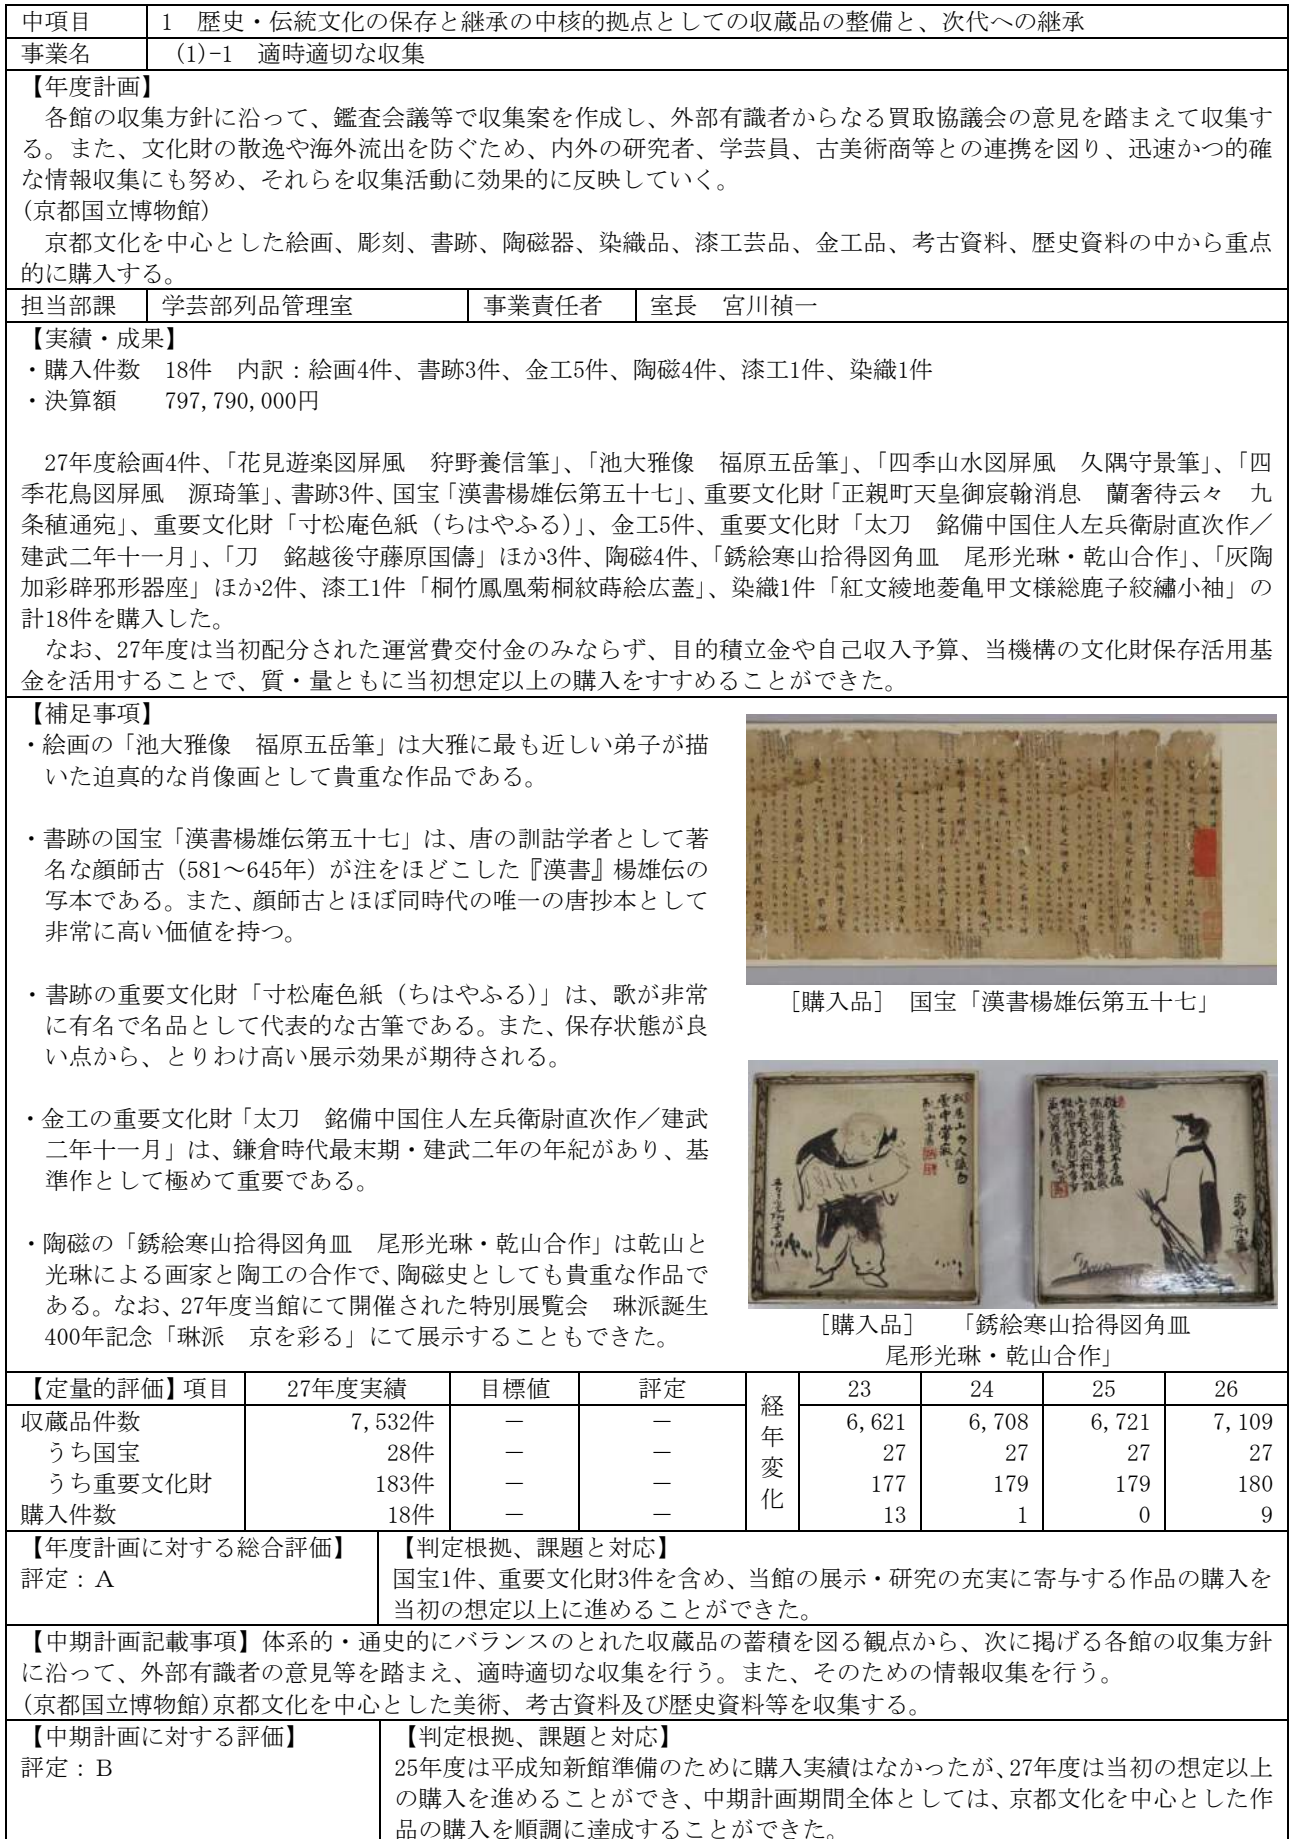 中項目　1　歴史・伝統文化の保存と継承の中核的拠点としての収蔵品の整備と、次代への継承
事業名　(1)-1　適時適切な収集
【年度計画】
各館の収集方針に沿って、鑑査会議等で収集案を作成し、外部有識者からなる買取協議会の意見を踏まえて収集す
る。また、文化財の散逸や海外流出を防ぐため、内外の研究者、学芸員、古美術商等との連携を図り、迅速かつ的確
な情報収集にも努め、それらを収集活動に効果的に反映していく。
(京都国立博物館)
京都文化を中心とした絵画、彫刻、書跡、陶磁器、染織品、漆工芸品、金工品、考古資料、歴史資料の中から重点
的に購入する。
担当部課　学芸部列品管理室　事業責任者　室長　宮川禎一
【実績・成果】
・購入件数　18件　内訳：絵画4件、書跡3件、金工5件、陶磁4件、漆工1件、染織1件
・決算額　797,790,000円
27年度絵画4件、「花見遊楽図屏風　狩野養信筆」、「池大雅像　福原五岳筆」、「四季山水図屏風　久隅守景筆」、「四
季花鳥図屏風　源琦筆」、書跡3件、国宝「漢書楊雄伝第五十七」、重要文化財「正親町天皇御宸翰消息　蘭奢待云々　九
条稙通宛」、重要文化財「寸松庵色紙（ちはやふる）」、金工5件、重要文化財「太刀　銘備中国住人左兵衛尉直次作／
建武二年十一月」、「刀　銘越後守藤原国儔」ほか3件、陶磁4件、「銹絵寒山拾得図角皿　尾形光琳・乾山合作」、「灰陶
加彩辟邪形器座」ほか2件、漆工1件「桐竹鳳凰菊桐紋蒔絵広蓋」、染織1件「紅文綾地菱亀甲文様総鹿子絞繡小袖」の
計18件を購入した。
なお、27年度は当初配分された運営費交付金のみならず、目的積立金や自己収入予算、当機構の文化財保存活用基
金を活用することで、質・量ともに当初想定以上の購入をすすめることができた。
【補足事項】
・絵画の「池大雅像　福原五岳筆」は大雅に最も近しい弟子が描
いた迫真的な肖像画として貴重な作品である。
・書跡の国宝「漢書楊雄伝第五十七」は、唐の訓詁学者として著
名な顔師古（581～645年）が注をほどこした『漢書』楊雄伝の
写本である。また、顔師古とほぼ同時代の唯一の唐抄本として
非常に高い価値を持つ。
・書跡の重要文化財「寸松庵色紙（ちはやふる）」は、歌が非常
に有名で名品として代表的な古筆である。また、保存状態が良
い点から、とりわけ高い展示効果が期待される。
・金工の重要文化財「太刀　銘備中国住人左兵衛尉直次作／建武
二年十一月」は、鎌倉時代最末期・建武二年の年紀があり、基
準作として極めて重要である。
・陶磁の「銹絵寒山拾得図角皿　尾形光琳・乾山合作」は乾山と
光琳による画家と陶工の合作で、陶磁史としても貴重な作品で
ある。なお、27年度当館にて開催された特別展覧会　琳派誕生
400年記念「琳派　京を彩る」にて展示することもできた。
［購入品］　国宝「漢書楊雄伝第五十七」
［購入品］　「銹絵寒山拾得図角皿
尾形光琳・乾山合作」
【定量的評価】項目　27年度実績　目標値　評定　経年変化　23　24　25　26
収蔵品件数　7,532件　－　－　6,621　6,708　6,721　7,109
うち国宝　28件　－　－　27　27　27　27
うち重要文化財　183件　－　－　177　179　179　180
購入件数　18件　－　－　13　1　0　9
【年度計画に対する総合評価】　【判定根拠、課題と対応】
評定：A　国宝1件、重要文化財3件を含め、当館の展示・研究の充実に寄与する作品の購入を
当初の想定以上に進めることができた。
【中期計画記載事項】体系的・通史的にバランスのとれた収蔵品の蓄積を図る観点から、次に掲げる各館の収集方針
に沿って、外部有識者の意見等を踏まえ、適時適切な収集を行う。また、そのための情報収集を行う。
(京都国立博物館)京都文化を中心とした美術、考古資料及び歴史資料等を収集する。
【中期計画に対する評価】　【判定根拠、課題と対応】
評定：B　25年度は平成知新館準備のために購入実績はなかったが、27年度は当初の想定以上
の購入を進めることができ、中期計画期間全体としては、京都文化を中心とした作
品の購入を順調に達成することができた。